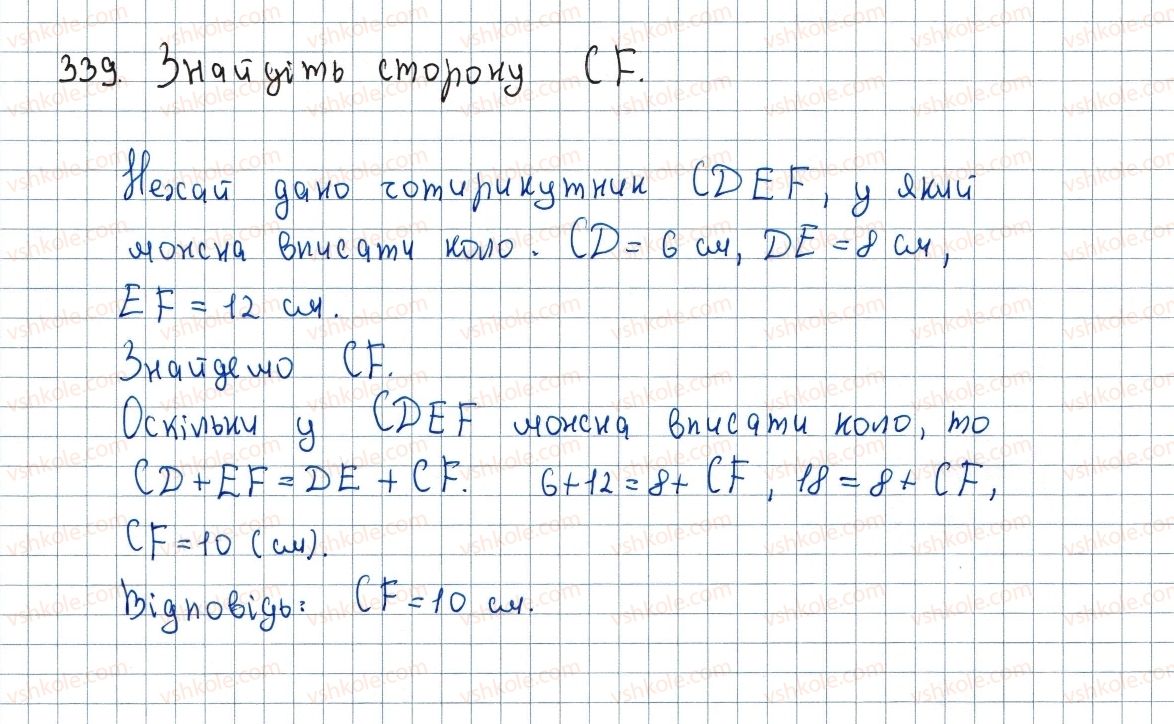 339. Знайдіть сторону CF.
Нехай дано чотирикутник CDEF, у який
можна вписати коло. CD = 6 см, DE = 8 см,
EF = 12 см.
Знайдемо CF.
Оскільки у CDEF можна вписати коло, то
CD + EF = DE + CF. 6 + 12 = 8 + CF, 18 = 8 + CF,
CF = 10 (см).
Відповідь: CF = 10 см.